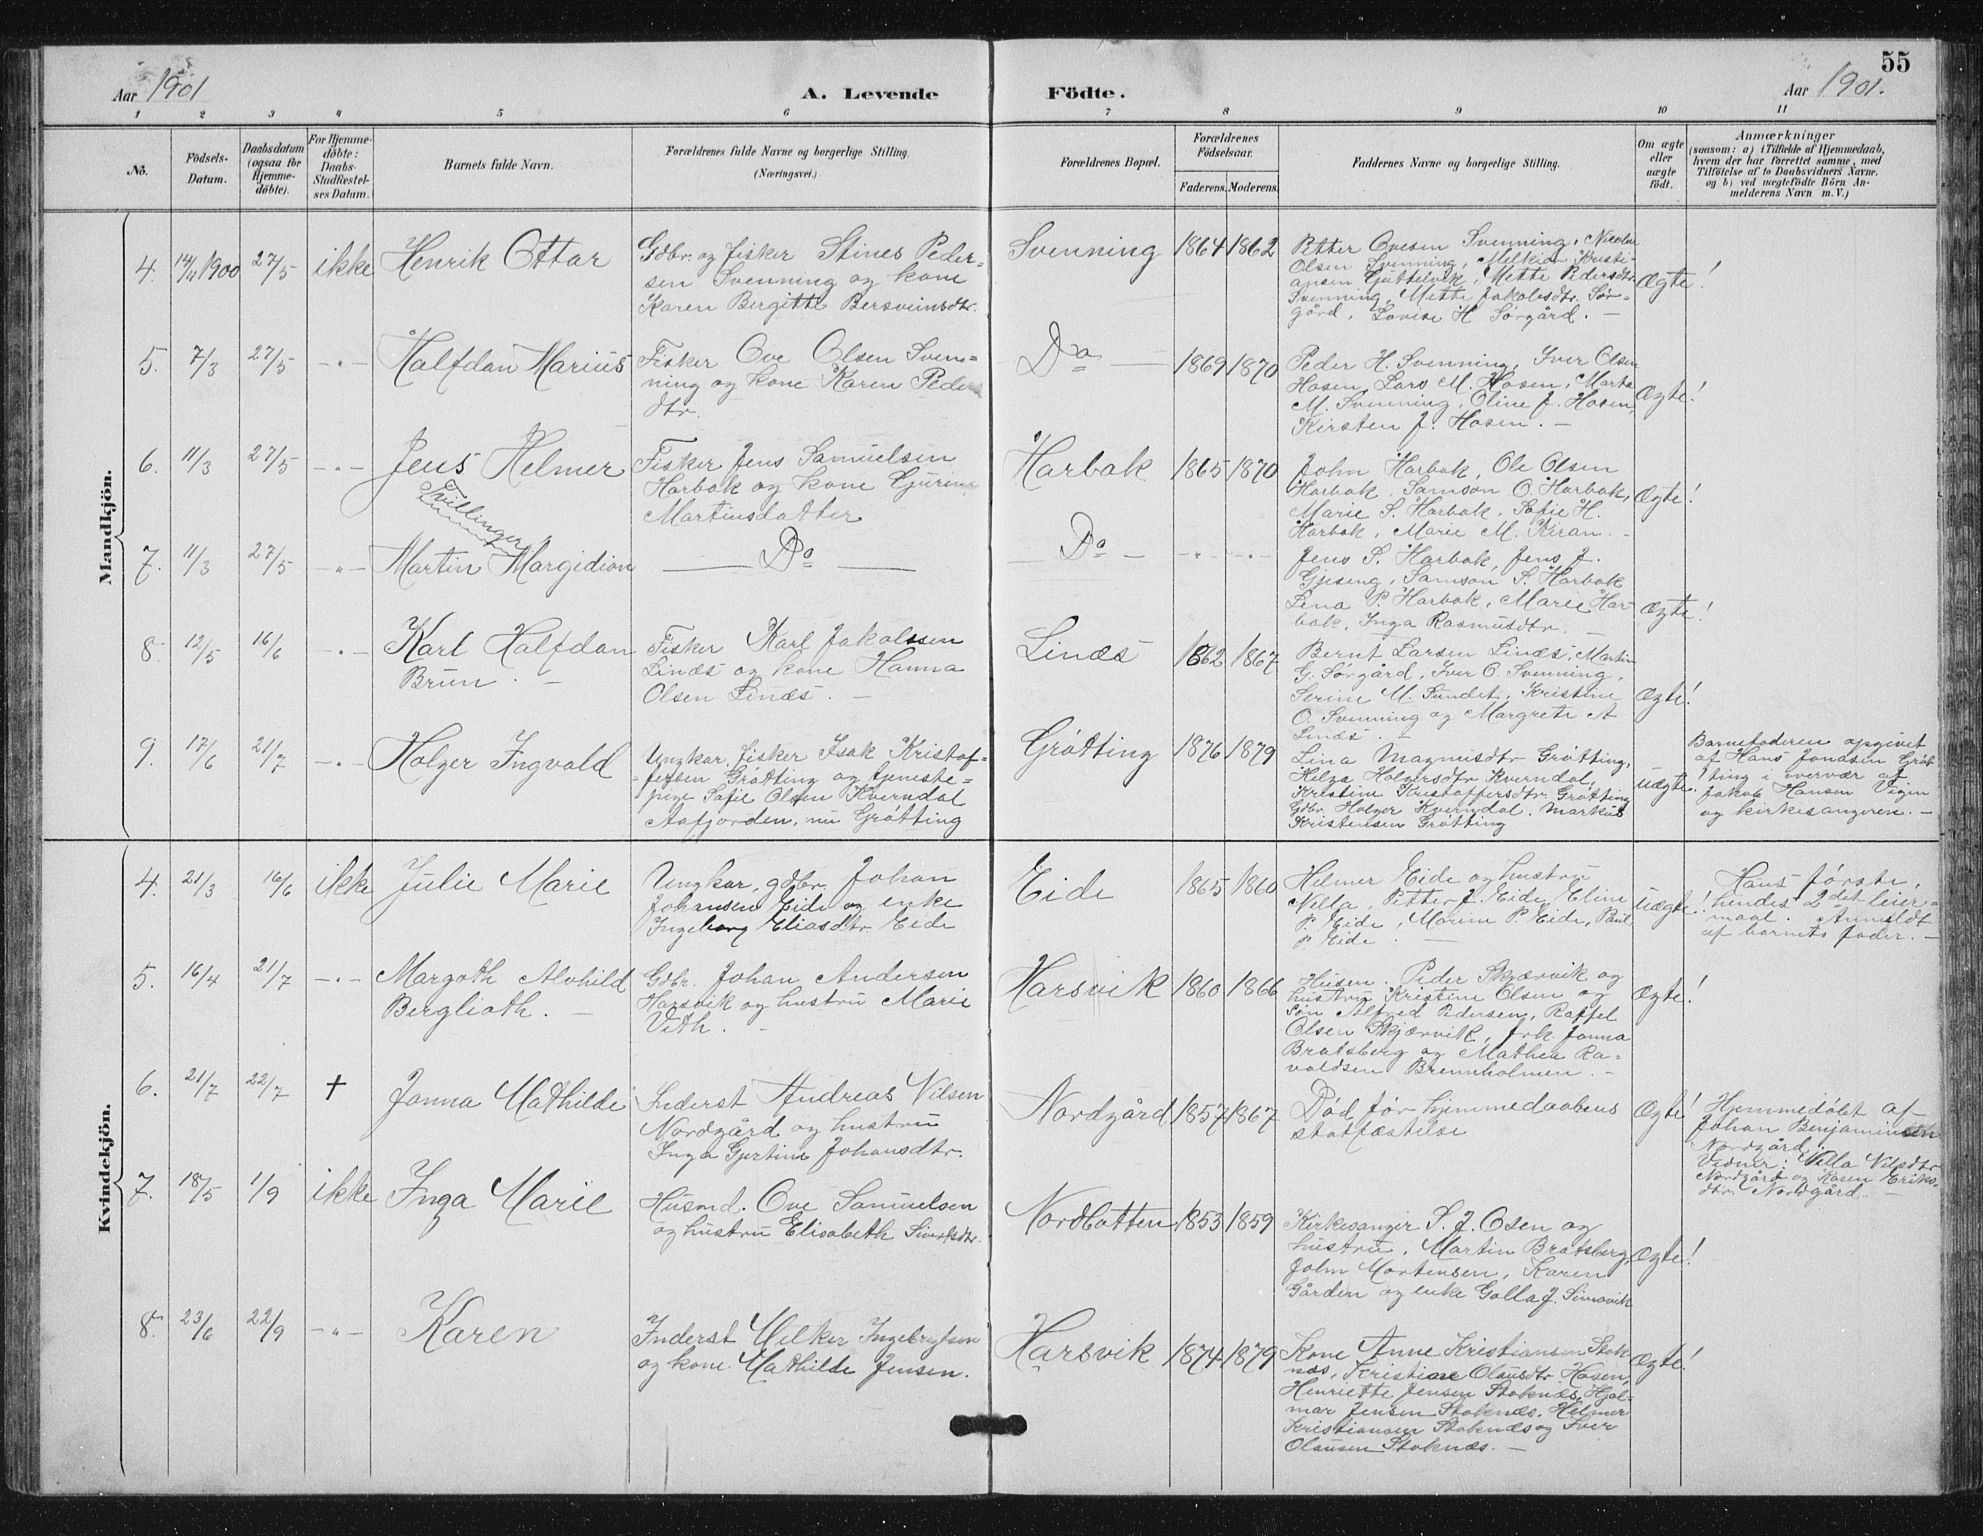 55
Aar 1901
A. Levende Födte.
Aar 1901.
1 2 3 4 5 6 7 8 9 10 11
No.
Födsels-
Datum.
Daabsdatum
(ogsaa for
Hjemme-
döbte).
For Hjemme-
döbte:
Daabs-
Stadfæstel-
ses Datum.
Barnets fulde Navn.
Forældrenes fulde Navne og borgerlige Stilling.
(Næringsvei.)
Forældrenes Bopæl.
Forældrenes
Födselsaar.
Faderens. Moderens.
Faddernes Navne og borgerlige Stilling.
Om ægte
eller
uægte
födt.
Anmærkninger
(saasom: a) i Tilfælde af Hjemmedaab,
hvem der har forrettet samme, med
Tilföielse af to Daabsvidners Navne.
og b) ved uægtefödte Börn An-
melderens Navn m. V.)
Mandkjön.
4. 14/11 1900 27/5 ikke Henrik Ottar
Gdbr. og fisker Stines Peder-
sen Svenning og kone
Karen Bergitte Bersveinsdtr.
Svenning 1864 1862
Petter Ovesen Svenning, Nicolai
Olsen Svenning, Melkior Kristi-
ansen , Mette Pedersdtr
Svenning, Mette Jakobsdtr. Sör-
gård, Lovise H Sörgård. —
Ægte!
5. 7/3 27/5 -"- Halfdan Marius
Fisker Ove Olsen Sven-
ning og kone Karen Peders
dtr.
Do — 1869 1870
Peder H. Svenning, Iver Olsen
Hosen, Lars M. Hosen, Marta
M. Svenning, Oline J. Hosen,
Kirsten J. Hosen. —
Ægte!
6. 11/3 27/5 -"- Jens Helmer
Tvillinger
Fisker Jens Samuelsen
Harbak og kone Gjurine
Martinsdatter
Harbak 1865 1870
John Harbak, Ole Olsen
Harbak, Samson O. Harbak,
Marie S. Harbak, Sofie H.
Harbak, Marie M. Kiran. —
Ægte!
7. 11/3 27/5 -"- Martin Margidion
— Do —
— Do — -"- -"-
Jens S. Harbak, Jens J.
Gjesing, Samson S. Harbak
Lena P. Harbak, Marie Har-
bak, Inga Rasmusdtr. —
Ægte!
8. 12/5 16/6 -"- Karl Halfdan
Brun. —
Fisker Karl Jakobsen
Linæs og kone Hanna
Olsen Linæs. —
Linæs 1862 1867
Bernt Larsen Linæs, Martin
G. Sörgård, Iver O. Svenning,
Serine M. Sundet, Kristine
O. Svenning og Margrete A
Linæs. —
Ægte!
9. 17/6 21/7 -"- Holger Ingvald
Ungkar, fisker Isak Kristof-
fersen Gröttting og tjeneste-
pige Sofie Olsen Kverndal
Aafjorden, nu Grötting
Grötting 1876 1879
Lina Magnusdtr Grötting,
Helga Holgersdtr Kverndal,
Kristine Kristoffersdtr. Grötting
Gdbr. Holger Kverndal, Markus
Kristensen Grötting
uægte.
Barnefaderen opgivet
af Hans Jonasen Gröt-
ting i overvær af
Jakob Hansen Vigen
og kirkesangeren. —
Kvindekjön.
4. 21/3 16/6 ikke Julie Marie
Ungkar, gdbr. Johan
Johansen Eide og enke
Ingeborg Eliasdtr. Eide
Eide 1865 1860
Helmer Eide og hustru
Nilla, Petter J. Eide, Eline
P. Eide, Maren P. Eide, Paul
P Eide. —
uægte!
Hans förste,
hendes 2det leier-
maal. Anmeldt
af barnets fader. —
5. 16/4 21/7 -"- Margoth Alvhild
Berglioth. —
Gdbr. Johan Andersen
Harsvik og hustru Marie
Vith. —
Harsvik 1860 1866
Husm. Peder Skjærvik og
hustru Kristine Olsen og
Sön Alfred Pedersen, Raffel
Olsen Skjærvik, frk. Janna
Bratsberg og Mathea Ra-
valdsen Brennholmen. —
Ægte!
6. 21/7 22/7 † Janna Mathilde
Inderst Andreas Nilsen
Nordgård og hustru
Inga Gjertine Johansdtr.
Nordgård 1857 1867
Död för hjemmedaabens
stadfæstelse
Ægte!
Hjemmedöbt af
Johan Benjaminsen
Nordgård.
Vidner: Nilla Nilsdtr
Nordgård og Karen Eriks-
dtr. Nordgård. —
7. 18/5 1/9 ikke Inga Marie
Husmd. Ove Samuelsen
og hustru Elisabeth Sivertsdtr.
Nordbotten 1853 1859
Kirkesanger S. J. Osen og
hustru, Martin Bratsberg,
John Mortensen, Karen
Gården og enke Golla J. Simavik
Ægte!
8. 23/6 22/9 -"- Karen
Inderst Melker Ingebrigtsen
og kone Mathilde Jensen.
Harsvik 1874 1879
Kone Anne Kristiansen Stok-
næs, Kristine Olausdtr. Hosen,
Henriette Jensen Stoknæs, Hjal-
mar Jensen Stoknæs, Helmer
Kristiansen Stoknæs og Iver
Olausen Stoknæs. —
Ægte!